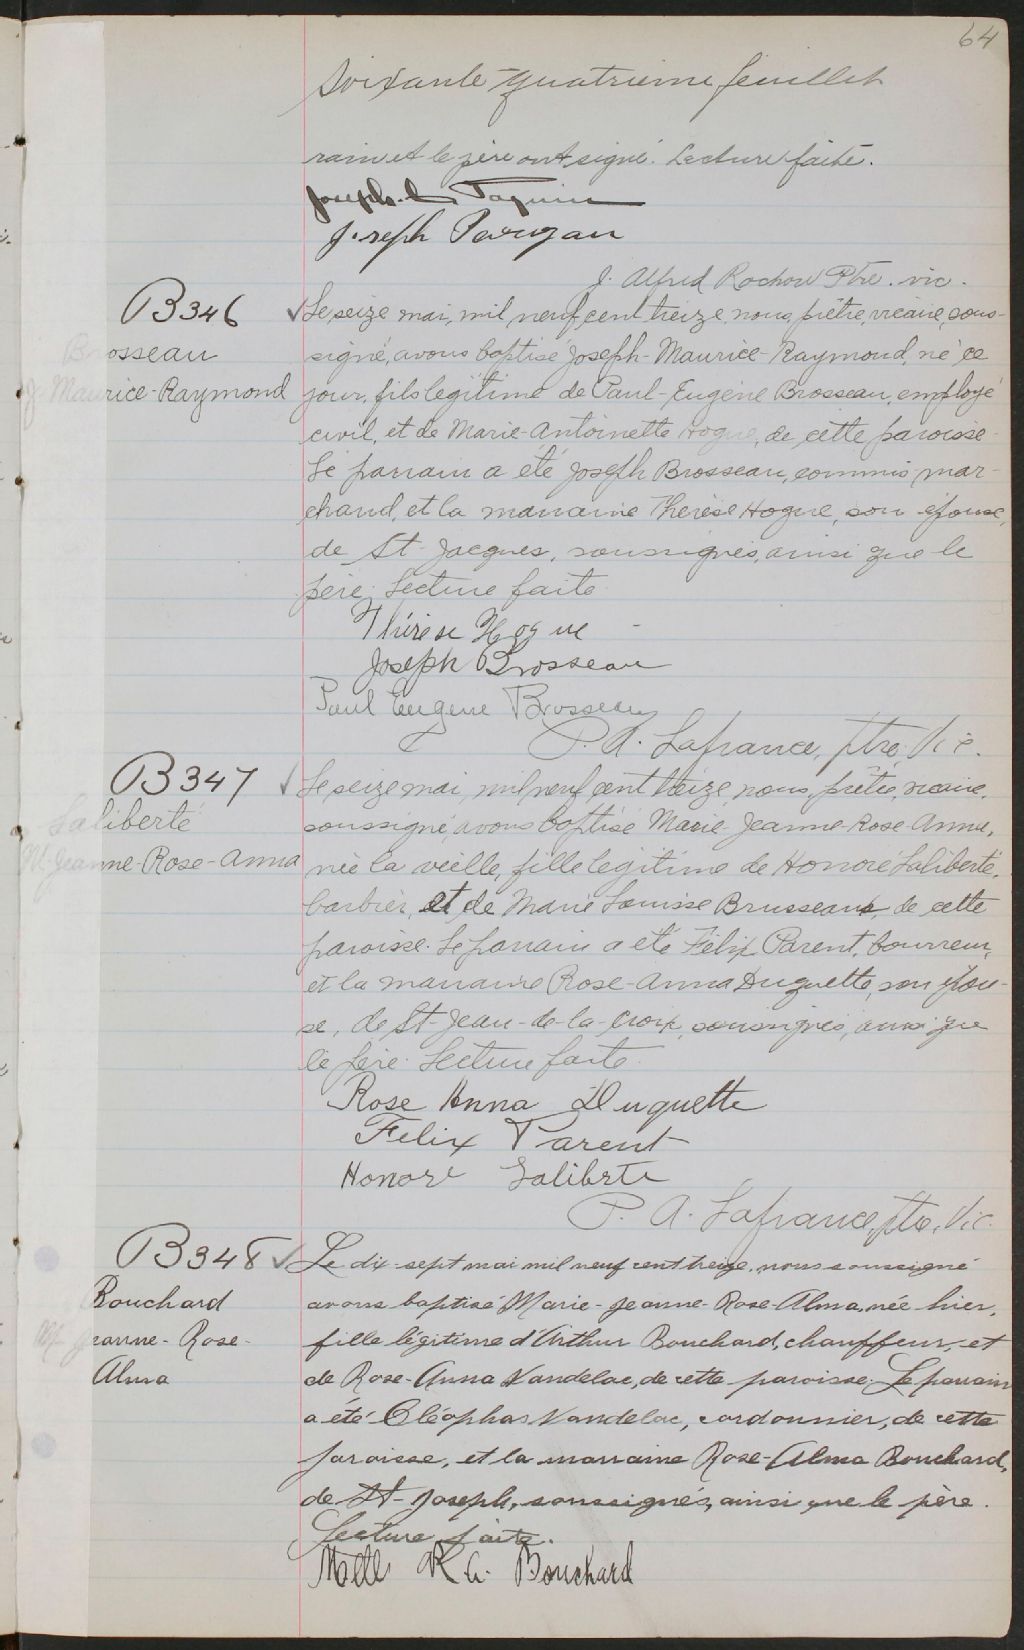 64
Soixante-quatrième feuillet
rain et le père ont signé. Lecture faite.
Joseph
Joseph
J. Alfred Rochon Ptre. vic.
B346
Le seize mai, mil neuf cent treize, nous, prêtre, vicaire, sous-
Brosseau
signé, avons baptisé Joseph-Maurice-Raymond, né ce
J. Maurice-Raymond
jour, fils légitime de Paul-Eugène Brosseau, employé
civil, et de Marie-Antoinette Hogue, de cette paroisse.
Le parrain a été Joseph Brosseau, commis mar-
chand, et la marraine Thérèse Hogue, son épouse,
de St-Jacques, soussignés, ainsi que le
père. Lecture faite.
Thérèse Hogue
Joseph Brosseau
Paul Eugene Brosseau
P. A. Lafrance, ptre, Vic.
B347
Le seize mai, mil neuf cent treize, nous, prêtre, vicaire,
Laliberté
soussigné, avons baptisé Marie-Jeanne-Rose-Anna,
M. Jeanne-Rose-Anna
née la veille, fille légitime de Honoré Laliberté,
barbier, et de Marie Louisse Brusseau, de cette
paroisse. Le parrain a été Félix Parent, bourreur,
et la marraine Rose-Anna Duquette, son épou-
se, de St-Jean-de-la-Croix, soussignés, ainsi que
le père. Lecture faite.
Rose Anna Duquette
Felix Parent
Honoré Laliberte
P. A. Lafrance, ptre, Vic.
B348
Le dix-sept mai mil neuf cent treize, nous soussigné
Bouchard
avons baptisé Marie-Jeanne-Rose-Alma, née hier,
M. Jeanne-Rose-
fille légitime d'Arthur Bouchard, chauffeur, et
Alma
de Rose-Anna Vandelac, de cette paroisse. Le parrain
a été Cléophas Vandelac, cordonnier, de cette
paroisse, et la marraine Rose-Alma Bouchard,
de St-Joseph, soussignés, ainsi que le père.
Lecture faite.
Melle R. A. Bouchard